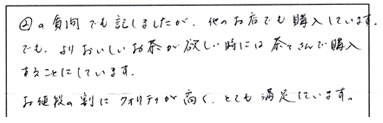 ②の質問でも記しましたが、他のお店でも購入しています。
でも、よりおいしいお茶が欲しい時には茶てさんで購入
することにしています。
お値段の割にクオリティが高く、とても満足しています。